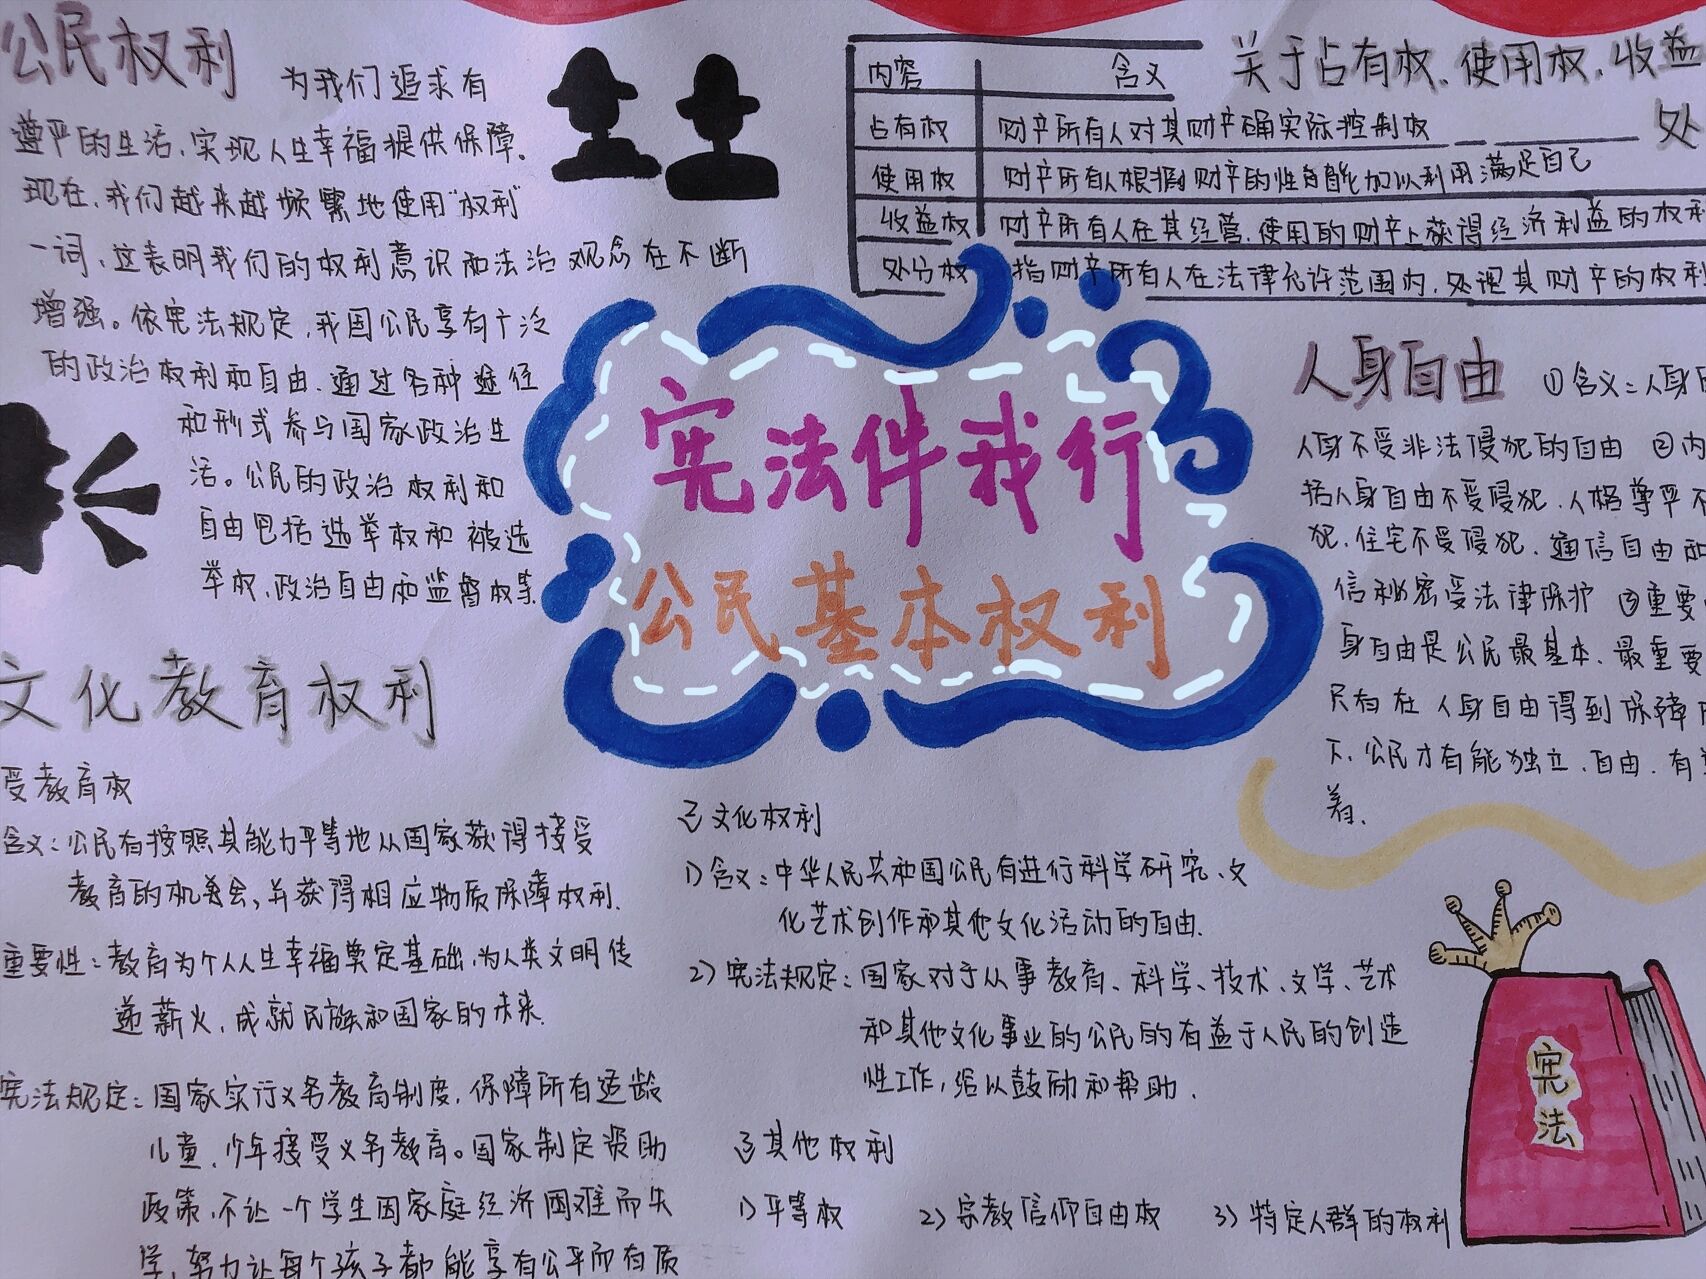 公民权利
为我们追求有
尊严的生活、实现人生幸福提供保障。
现在、我们越来越频繁地使用"权利"
一词，这表明我们的权利意识和法治观念在不断
增强。依宪法规定，我国公民享有广泛
的政治权利和自由、通过各种途径
和形式参与国家政治生
活。公民的政治权利和
自由包括选举权和被选
举权、政治自由和监督权等
内容 含义
占有权 财产所有人对其财产确实际控制权
使用权 财产所有人根据财产的性能加以利用满足自己
收益权 财产所有人在其经营、使用的财产上获得经济利益的权利
处分权 指财产所有人在法律允许范围内，处理其财产的权利
关于占有权、使用权，收益
处
宪法伴我行
公民基本权利
人身自由 ①含义：人身
人身不受非法侵犯的自由 ②内
括人身自由不受侵犯、人格尊严不
犯、住宅不受侵犯、通信自由和
信秘密受法律保护 ③重要
身自由是公民最基本、最重要
只有在人身自由得到保障
下、公民才有能独立、自由、有
着、
文化教育权利
受教育权
含义：公民有按照其能力平等地从国家获得接受
教育的机会，并获得相应物质保障权利.
重要性：教育为个人人生幸福奠定基础，为人类文明传
递薪火，成就民族和国家的未来.
宪法规定：国家实行义务教育制度，保障所有适龄
儿童、少年接受义务教育。国家制定资助
政策，不让一个学生因家庭经济困难而失
学，努力让每个孩子都能享有公平而有质
2 文化权利
1) 含义：中华人民共和国公民有进行科学研究、文
化艺术创作和其他文化活动的自由.
2) 宪法规定：国家对于从事教育、科学、技术、文学、艺术
和其他文化事业的公民的有益于人民的创造
性工作，给以鼓励和帮助.
3 其他权利
1) 平等权 2) 宗教信仰自由权 3) 特定人群的权利
宪
法